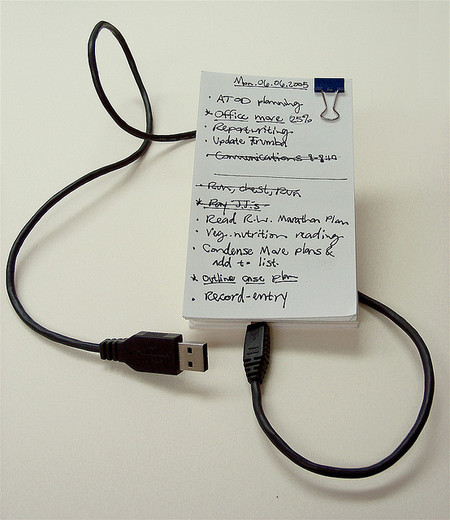 Mon. 06.06.2005
• AT-OD planning
* Office move 25%
• Report writing
• Update
• Communications 8-8:40
• Run, chest, Run
* Pay J.J.'s
• Read R.W. Marathon Plan
• Veg. nutrition reading
• Condense Move plans &
add to list.
* Outline case plan
• Record-entry